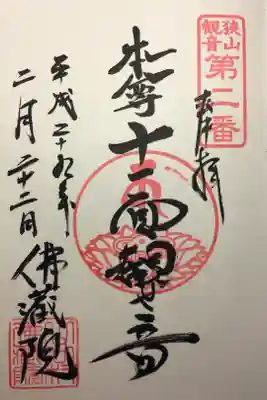 狭山
観音
第二番
奉拝
本尊十一面観音
平成二十九年
二月二十二日
佛蔵院